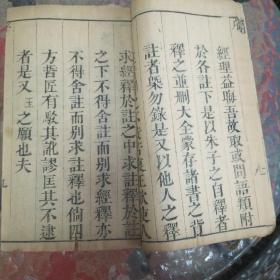 經墾益聯吾故取或問語類附
於各註下是以朱子之自釋者
釋之並刪大全蒙存諸書之背
註者槩勿錄是又以他人之釋
求經釋於註之中求註釋於註
之下不得舍註而別求經釋亦
不得舍註而別求註釋也倘四
方哲匠有駁其訛謬匡其不逮
者是又王之願也夫